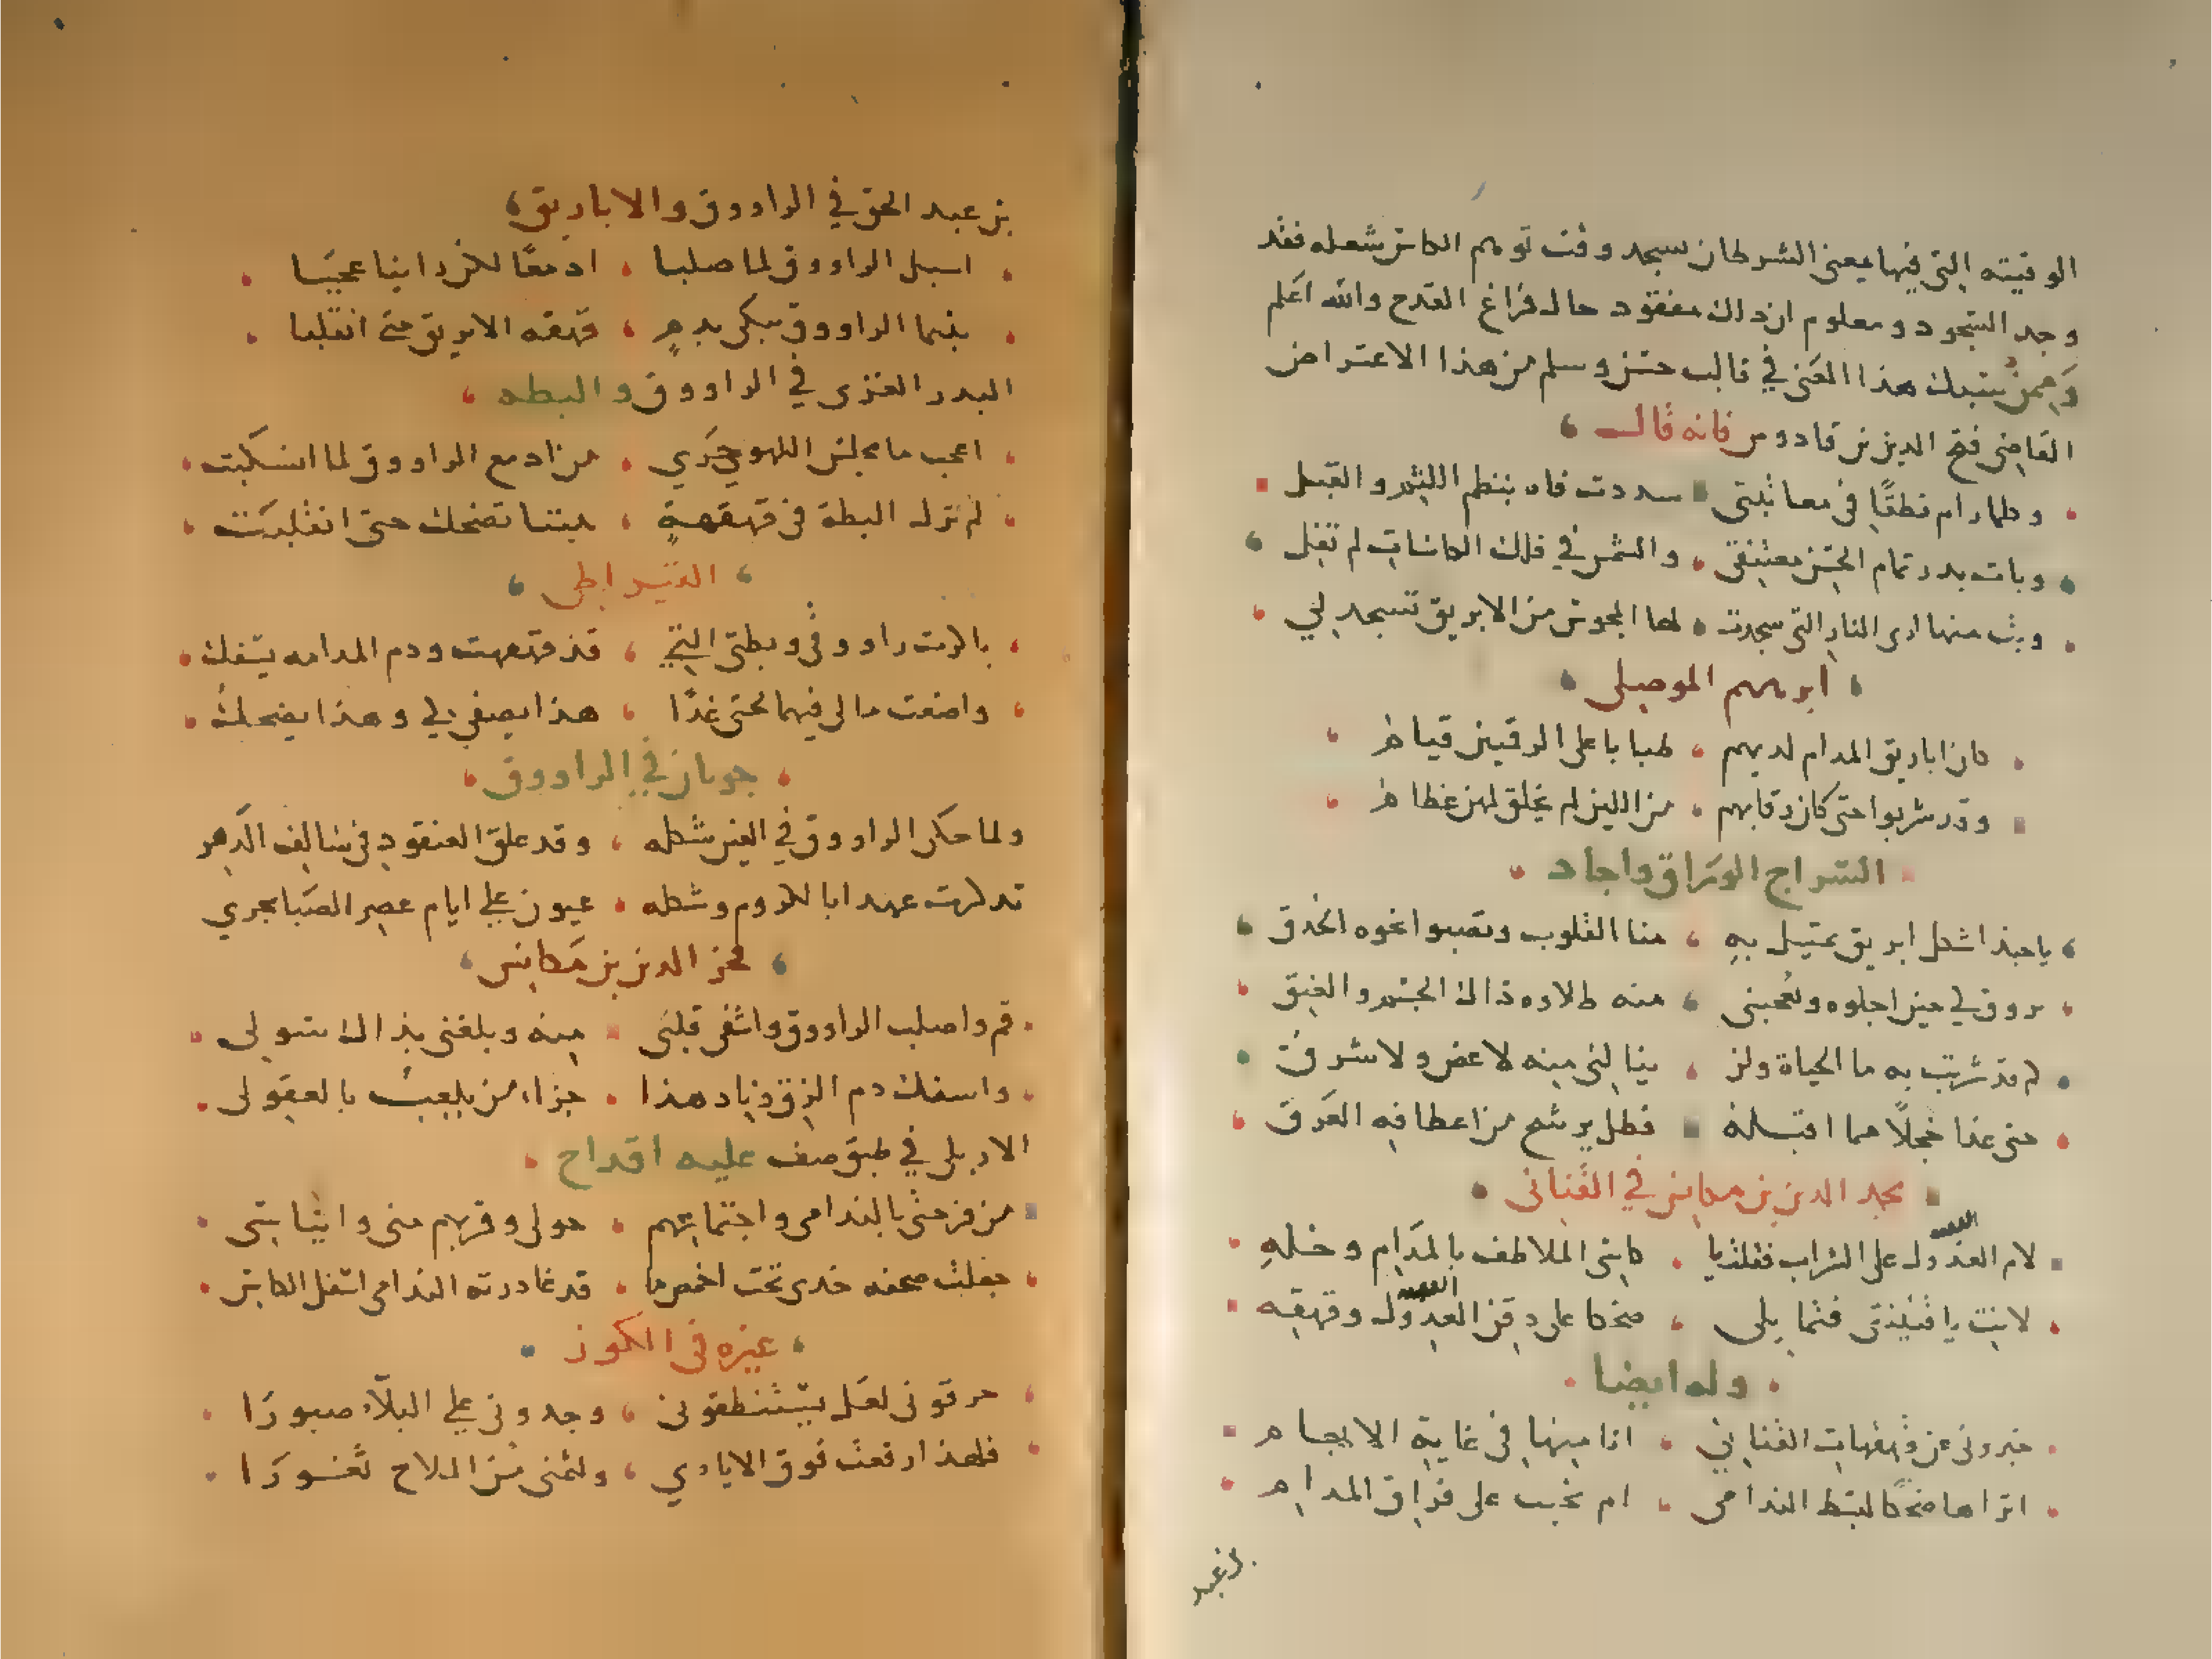 الوقيته التي فيها معنى الشرطان سجد وقت توهم الكاس شعله فقد
وجد السجود ومعلوم ان ذلك مفقود حال فراغ القدح والله اعلم
وممن سبك هذا المعنى في قالب حسن وسلم من هذا الاعتراض
القاضي فتح الدين بن قادوس فانه قال
وكلما رام نطقًا في معاتبتي سددت فاه بنظم اللثم والقبل
وبات بدر تمام الحسن معتنقي والشمس في فلك الكاسات لم تفل
وبت منها ارى النار التي سجدت لها المجوس من الابريق تسجد لي
ابرهيم الموصلي
كان اباريق المدام لديهم ظبا باعلى الرقمتين قيام
وقد شربوا حتى كان رقابهم من اللين لم يخلق لهن عظام
السراج الوراق واجاد
ياحبذا شكل ابريق تميل به منا القلوب وتصبو نحوه الحدق
يروق لي حين اجلوه ويعجبني منه طلاوة ذاك الجسم والعنق
كم قد شربت به ما الحياة ولن ينالني منه لا غص ولا شرق
حتى غدا خجلًا مما اقبله فظل يرشح من اعطافه العرق
مجد الدين بن مكانس في القناني
لام العذول على الشراب فقلت يا كاسي الملاطف بالمدام وخله
لانت يا قنينتي فثمايلى ضحكا على دقن العذول وقهقه
وله ايضا
خبروني عن قهقهات القناني انا منها في غاية الابهام
اتراها ضحكا لبسط الندامى ام نحيب على فراق المدام
بن عبد
بن عبد الحق في الراووق والاباريق
اسبل الراووق لما صلبا ادمعًا لكن راينا عجبًا
بينما الراووق يبكي بدم قهقه الابريق حتى انقلبا
البدر الغزي في الراووق والبطه
اعجب ما مجلس اللهو جرى من ادمع الراووق لما انسكبت
لم تزل البطة في قهقهة بيننا تضحك حتى انقلبت
القيراطي
باكرت راووقي وبطتي التي قد قهقهت ودم المدامه يسفك
واضعت مالى فيهما حتى غدًا هذا يصفي لي وهذا يضحك
جوبان في الراووق
ولما حكى الراووق في العين شكله وقد علق العنقود في سالف الدهر
تدكرت عهدا بالكروم وشكله عيون على ايام عصر الصبا تجري
فخر الدين بن مكانس
قم واصلب الراووق واشفى قلبى منه وبلغني بذاك سولى
واسفك دم الزق ذياد هذا جزاء من يلعب بالعقولى
الاربلي في طبق صف عليه اقداح
من فرحتي بالندامى واجتماعهم حولى وقربهم منى وايناسى
جعلت صحفه خدى تحت اخمص ما قد غادرته الندامى اسفل الكاس
غيره في الكوز
حرقوني لعل يستنطقوني وجدوني على البلاء صبورًا
فلهذا رفعت فوق الايادي ولثمنى من الملاح ثغورًا